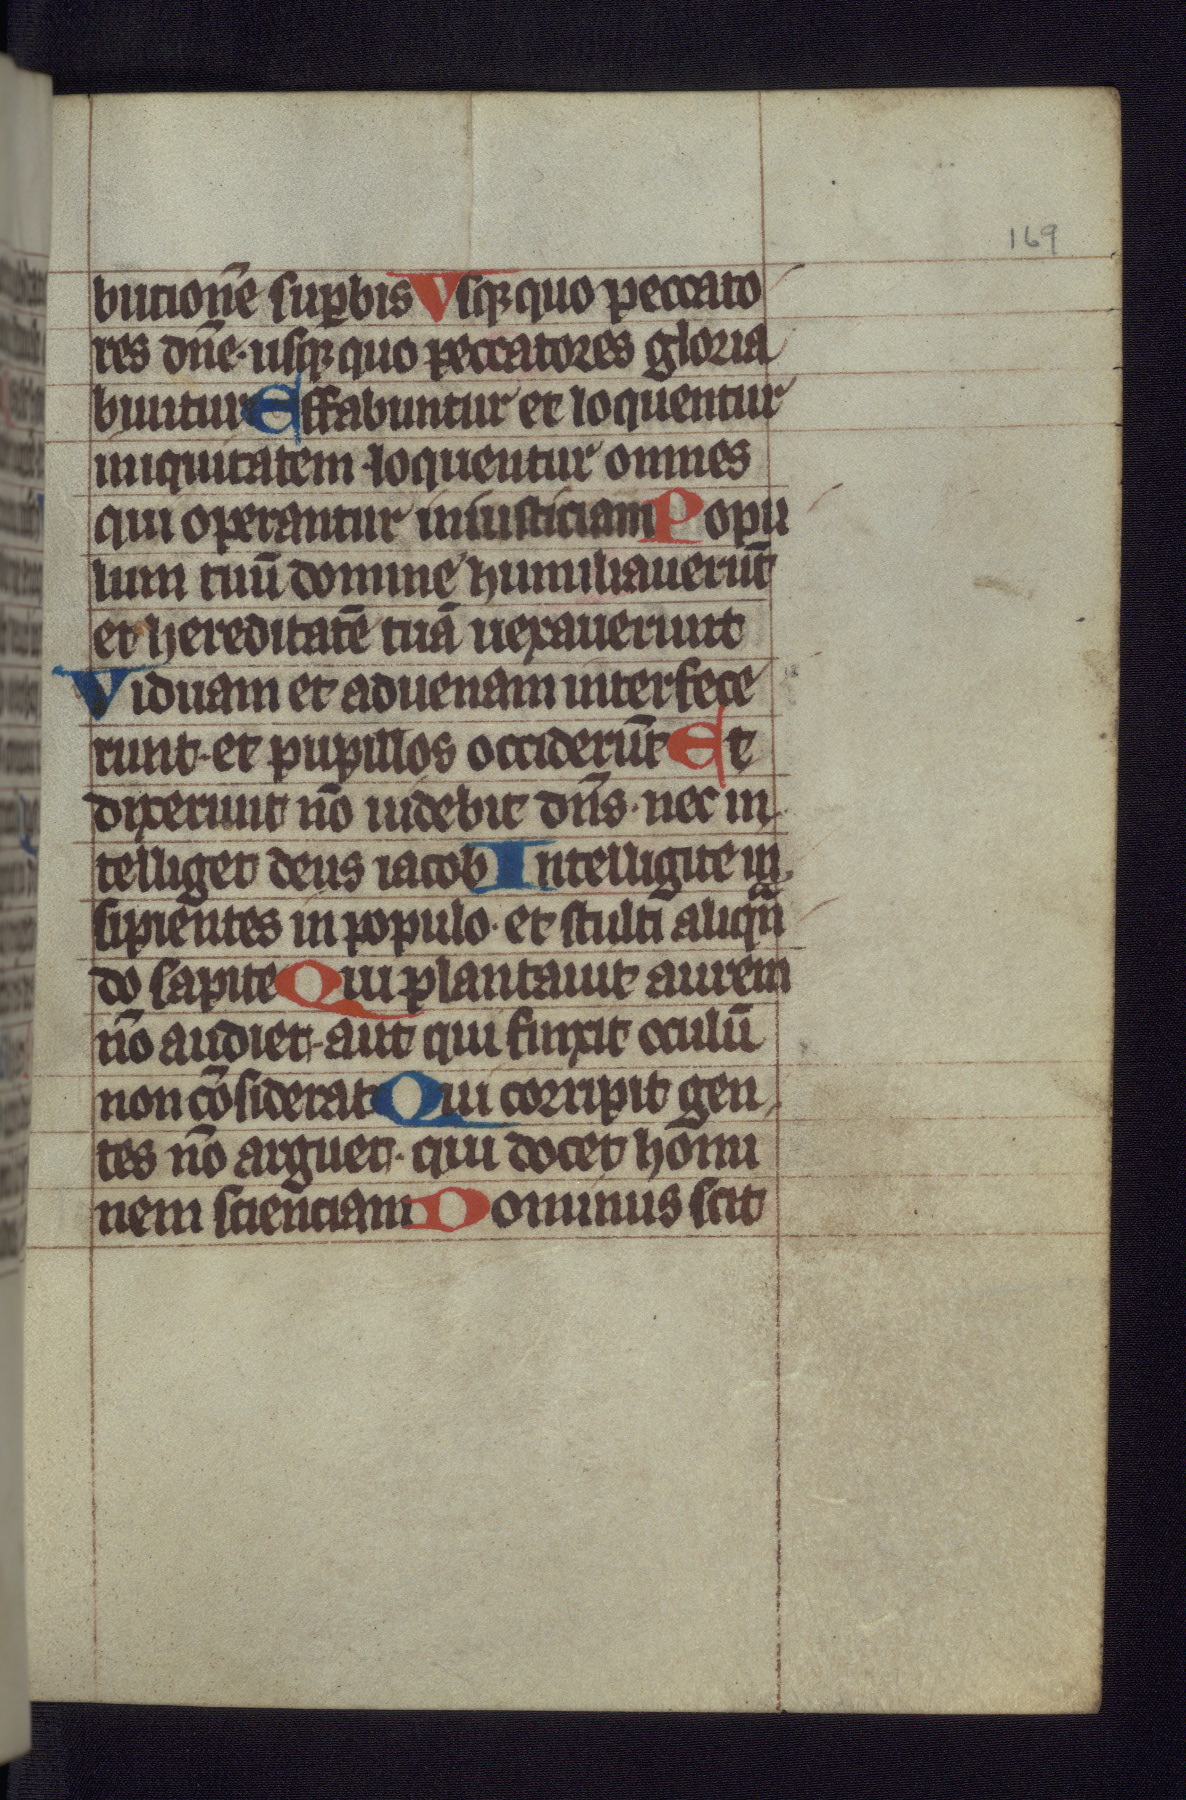 169
butionē suꝑbis Vsqꝫ quo peccato
res dn̄e · usqꝫ quo peccatores gloria
buntur Effabuntur et loquentur
iniquitatem · loquentur omnes
qui operantur iniusticiam Popu
lum tuū domine humiliauerūt
et hereditatē tuā uexauerunt
Viduam et aduenam interfece
runt · et pupillos occiderūt Et
dixerunt nō uidebit dn̄s · nec in
telliget deus iacob Intelligite in
sipientes in populo · et stulti aliqn̄
do sapite Qui plantauit aurem
nō audiet · aut qui finxit oculū
non cōsiderat Qui corripit gen
tes nō arguet · qui docet homi
nem scienciam Dominus scit